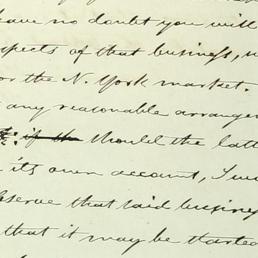 have no doubt you will
spects of that business, u
or the N. York market.
any reasonable arrangem
t: if th Should the latt
its own account, I wo
bserve that said busines
that it may be started